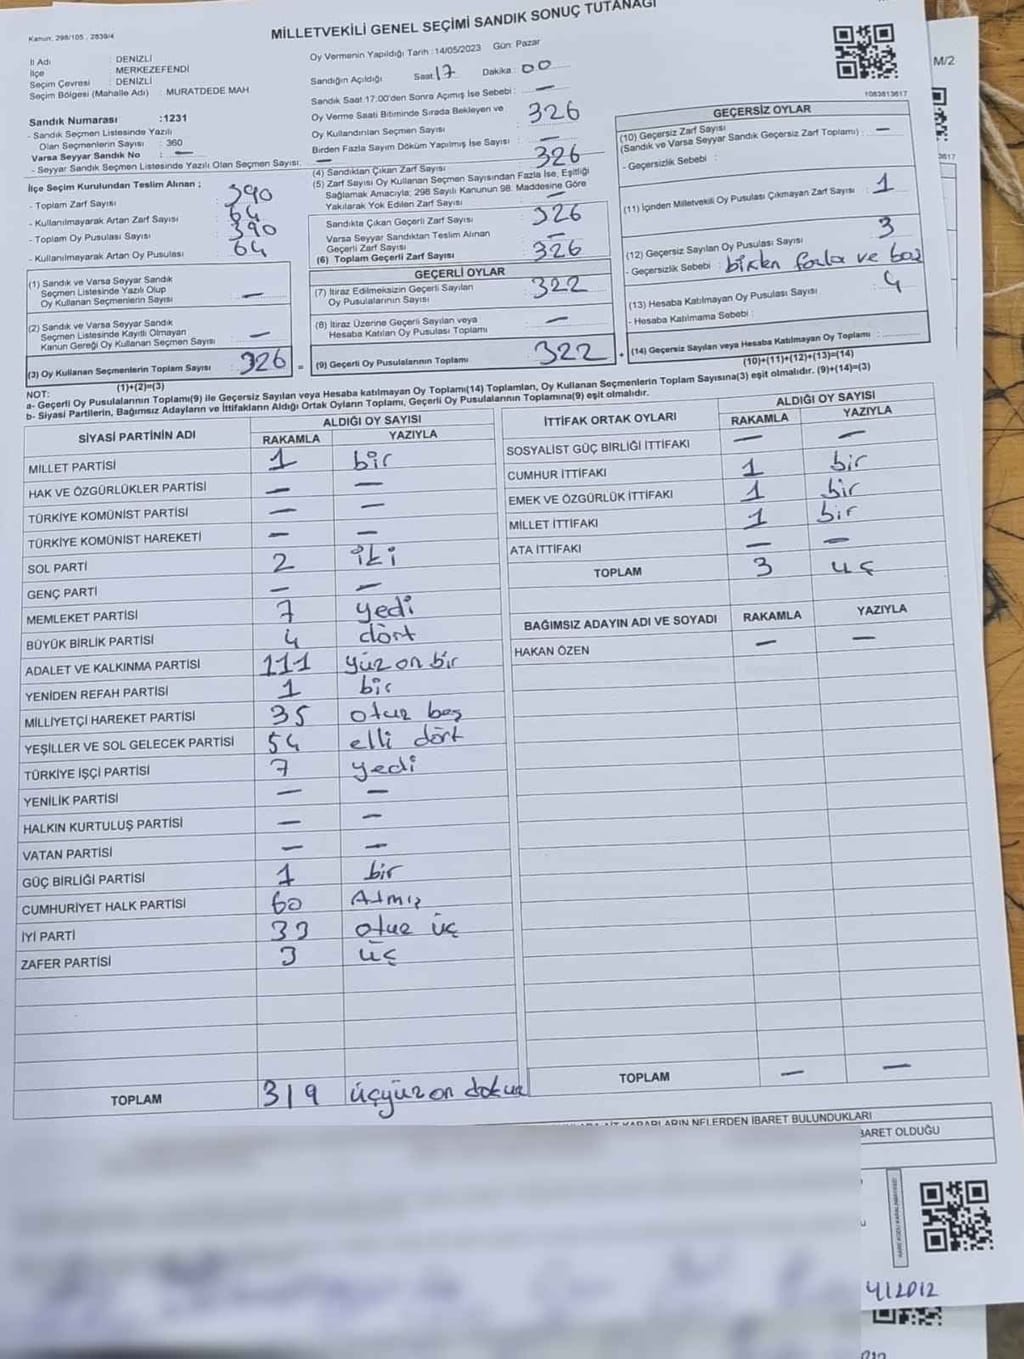 MİLLETVEKİLİ GENEL SEÇİMİ SANDIK SONUÇ TUTANAĞI
M/2
Kanun: 298/105, 2839/4
İl Adı : DENİZLİ
İlçe : MERKEZEFENDİ
Seçim Çevresi : DENİZLİ
Seçim Bölgesi (Mahalle Adı) : MURATDEDE MAH.
Oy Vermenin Yapıldığı Tarih : 14/05/2023 Gün: Pazar
Sandığın Açıldığı Saat: 17 Dakika : 00
Sandık Saat 17:00'den Sonra Açılmış İse Sebebi : —
Oy Verme Saati Bitiminde Sırada Bekleyen ve
Oy Kullandırılan Seçmen Sayısı : 326
Birden Fazla Sayım Döküm Yapılmış İse Sayısı : —
Sandık Numarası :1231
- Sandık Seçmen Listesinde Yazılı
Olan Seçmenlerin Sayısı : 360
Varsa Seyyar Sandık No : —
- Seyyar Sandık Seçmen Listesinde Yazılı Olan Seçmen Sayısı: —
İlçe Seçim Kurulundan Teslim Alınan ;
- Toplam Zarf Sayısı : 390
- Kullanılmayarak Artan Zarf Sayısı : 64
- Toplam Oy Pusulası Sayısı : 390
- Kullanılmayarak Artan Oy Pusulası : 64
(1) Sandık ve Varsa Seyyar Sandık
Seçmen Listesinde Yazılı Olup
Oy Kullanan Seçmenlerin Sayısı : —
(2) Sandık ve Varsa Seyyar Sandık
Seçmen Listesinde Kayıtlı Olmayan
Kanun Gereği Oy Kullanan Seçmen Sayısı : —
(3) Oy Kullanan Seçmenlerin Toplam Sayısı : 326
(1)+(2)=(3)
(4) Sandıktan Çıkan Zarf Sayısı : 326
(5) Zarf Sayısı Oy Kullanan Seçmen Sayısından Fazla İse, Eşitliği
Sağlamak Amacıyla; 298 Sayılı Kanunun 98. Maddesine Göre
Yakılarak Yok Edilen Zarf Sayısı : —
Sandıkta Çıkan Geçerli Zarf Sayısı : 326
Varsa Seyyar Sandıktan Teslim Alınan
Geçerli Zarf Sayısı : —
(6) Toplam Geçerli Zarf Sayısı : 326
GEÇERLİ OYLAR
(7) İtiraz Edilmeksizin Geçerli Sayılan
Oy Pusulalarının Sayısı : 322
(8) İtiraz Üzerine Geçerli Sayılan veya
Hesaba Katılan Oy Pusulası Toplamı : —
= (9) Geçerli Oy Pusulalarının Toplamı : 322 +
1083813817
GEÇERSİZ OYLAR
(10) Geçersiz Zarf Sayısı
(Sandık ve Varsa Seyyar Sandık Geçersiz Zarf Toplamı) : —
- Geçersizlik Sebebi :
(11) İçinden Milletvekili Oy Pusulası Çıkmayan Zarf Sayısı : 1
(12) Geçersiz Sayılan Oy Pusulası Sayısı : 3
- Geçersizlik Sebebi : birden fazla ve boş
(13) Hesaba Katılmayan Oy Pusulası Sayısı : 4
- Hesaba Katılmama Sebebi :
(14) Geçersiz Sayılan veya Hesaba Katılmayan Oy Toplamı :
(10)+(11)+(12)+(13)=(14)
NOT:
a- Geçerli Oy Pusulalarının Toplamı(9) ile Geçersiz Sayılan veya Hesaba katılmayan Oy Toplamı(14) Toplamları, Oy Kullanan Seçmenlerin Toplam Sayısına(3) eşit olmalıdır. (9)+(14)=(3)
b- Siyasi Partilerin, Bağımsız Adayların ve İttifakların Aldığı Ortak Oyların Toplamı, Geçerli Oy Pusulalarının Toplamına(9) eşit olmalıdır.
SİYASİ PARTİNİN ADI ALDIĞI OY SAYISI
RAKAMLA YAZIYLA
MİLLET PARTİSİ 1 bir
HAK VE ÖZGÜRLÜKLER PARTİSİ — —
TÜRKİYE KOMÜNİST PARTİSİ — —
TÜRKİYE KOMÜNİST HAREKETİ — —
SOL PARTİ 2 iki
GENÇ PARTİ — —
MEMLEKET PARTİSİ 7 yedi
BÜYÜK BİRLİK PARTİSİ 4 dört
ADALET VE KALKINMA PARTİSİ 111 yüz on bir
YENİDEN REFAH PARTİSİ 1 bir
MİLLİYETÇİ HAREKET PARTİSİ 35 otuz beş
YEŞİLLER VE SOL GELECEK PARTİSİ 54 elli dört
TÜRKİYE İŞÇİ PARTİSİ 7 yedi
YENİLİK PARTİSİ — —
HALKIN KURTULUŞ PARTİSİ — —
VATAN PARTİSİ — —
GÜÇ BİRLİĞİ PARTİSİ 1 bir
CUMHURİYET HALK PARTİSİ 60 Atmış
İYİ PARTİ 33 otuz üç
ZAFER PARTİSİ 3 üç
TOPLAM 319 üçyüz on dokuz
İTTİFAK ORTAK OYLARI ALDIĞI OY SAYISI
RAKAMLA YAZIYLA
SOSYALİST GÜÇ BİRLİĞİ İTTİFAKI — —
CUMHUR İTTİFAKI 1 bir
EMEK VE ÖZGÜRLÜK İTTİFAKI 1 bir
MİLLET İTTİFAKI 1 bir
ATA İTTİFAKI — —
TOPLAM 3 üç
BAĞIMSIZ ADAYIN ADI VE SOYADI RAKAMLA YAZIYLA
HAKAN ÖZEN — —
TOPLAM — —
NELERDEN İBARET BULUNDUKLARI
BARET OLDUĞU